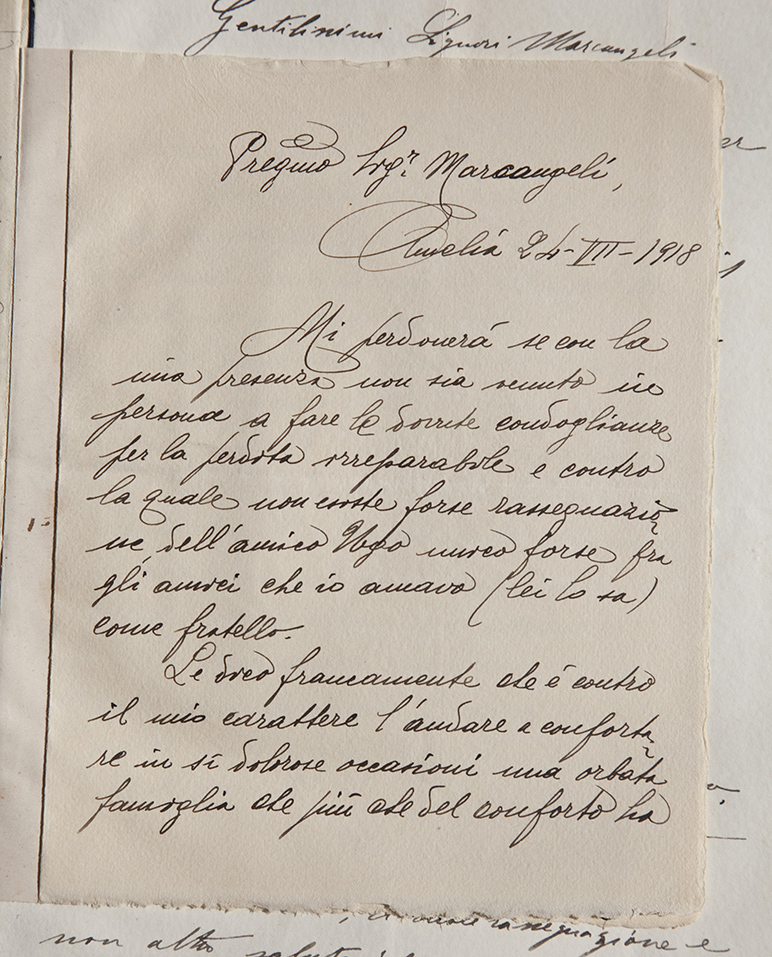 Gentilissimi Signori Marcangeli
Pregmo Sigr. Marcangeli,
Amelia 24-VII-1918
Mi perdonerá se con la
mia presenza non sia venuto in
persona a fare le dovute condoglianze
per la perdita irreparabile e contro
la quale non esiste forse rassegnazio-
ne, dell'amico Ugo unico forse fra
gli amici che io amavo (lei lo sa)
come fratello.
Le dico francamente che é contro
il mio carattere l'andare a conforta-
re in sí dolorose occasioni una orbata
famiglia che piú che del conforto ha
rassegnazione e
non altro